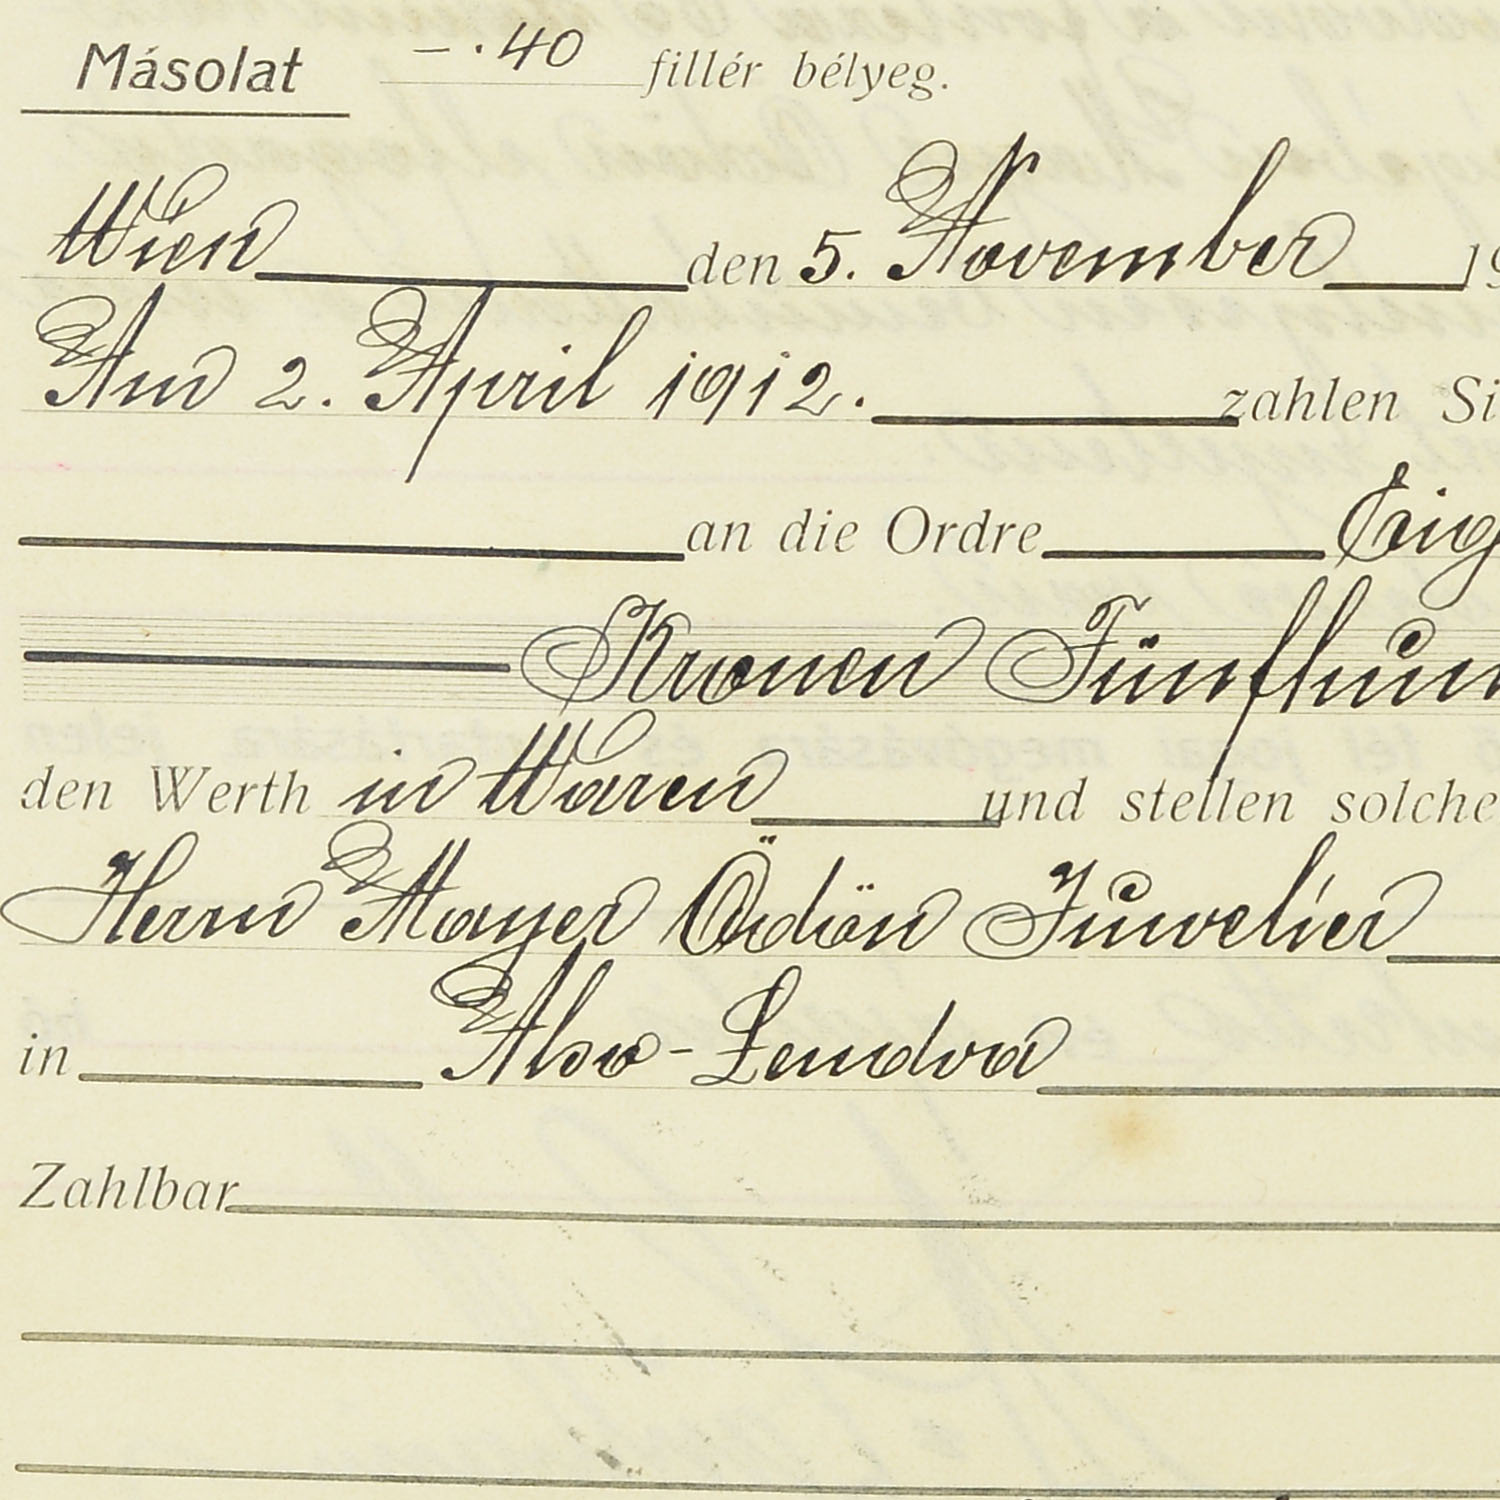 Másolat —.40 fillér bélyeg.
Wien den 5. November 19
Am 2. April 1912. zahlen Si
an die Ordre Eig
Kronen Fünfhun
den Werth in Waren und stellen solche
Herrn Mayer Ödön Juwelier
in Also-Lendva
Zahlbar